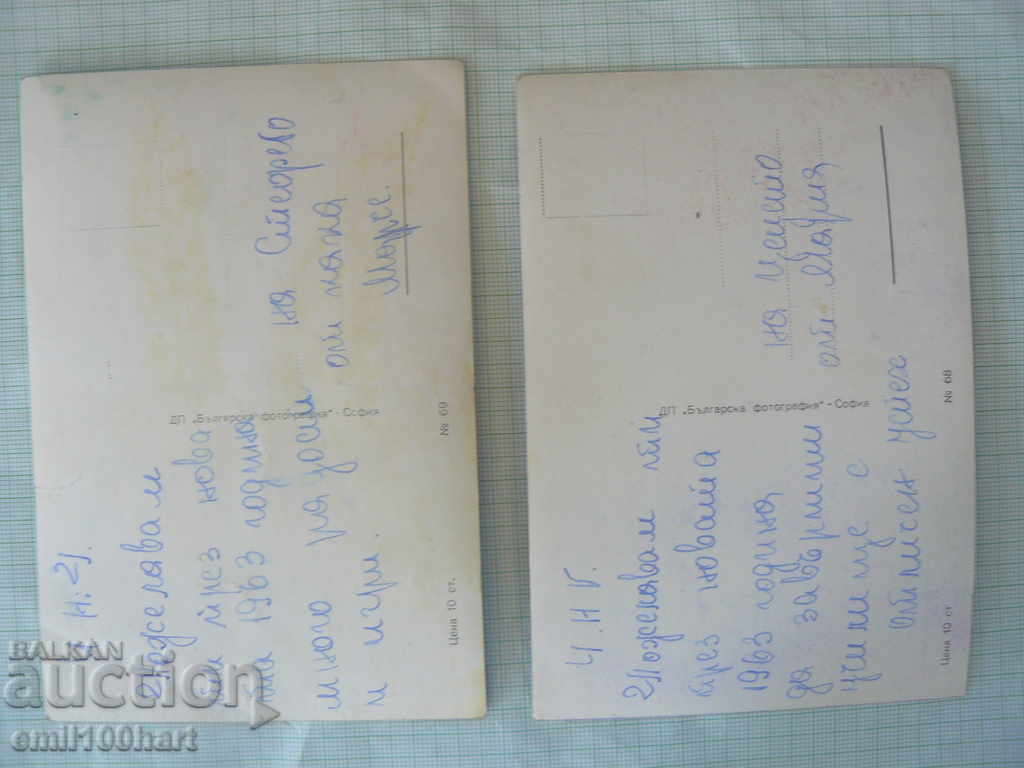 Н. г.
Пожелавам
ти през нова
та 1963 година
много радости
и игри.
на Стефчо
от кака
Мари.
ДП „Българска фотография" - София
№ 69
Цена 10 ст.
Ч. Н. Г.
Пожелавам ти
през новата
1963 година
да завършиш
училище с
отличен успех
на Ценето
от Мария
ДП „Българска фотография" - София
№ 68
Цена 10 ст
BALKAN
auction
emil100hart